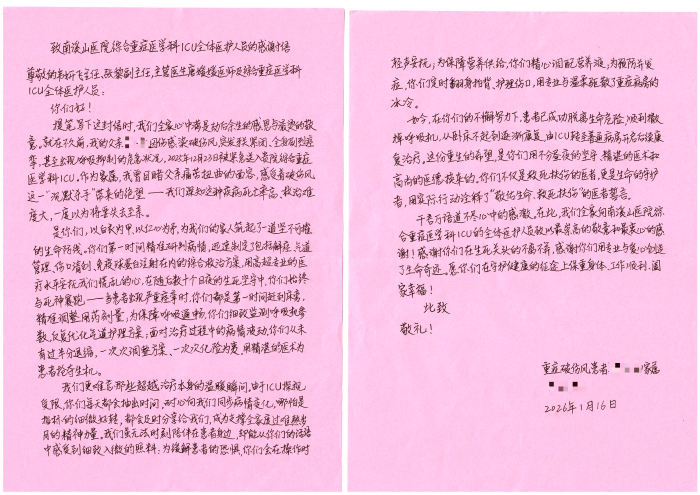 致南溪山医院综合重症医学科ICU全体医护人员的感谢信
尊敬的韦妍飞主任、张黎副主任、主管医生唐媛媛医师及综合重症医学科
ICU全体医护人员:
你们好!
提笔写下这封信时,我们全家心中满是劫后余生的感恩与滚烫的敬
意。就在不久前,我的父亲 因伤感染破伤风,突发牙关紧闭、全身剧烈痉
挛,甚至出现呼吸抑制的危急状况,2025年12月23日被紧急送入贵院综合重症
医学科ICU。作为家属,我曾目睹父亲痛苦扭曲的面容,感受着破伤风
这一“沉默杀手”带来的绝望——我们深知这种疾病死亡率高、救治难
度大,一度以为将要失去至亲。
是你们,以白衣为甲,以仁心为刃,为我们的家人筑起了一道坚不可摧
的生命防线。你们第一时间精准研判病情,迅速制定包括解痉、气道
管理、伤口清创、免疫球蛋白注射在内的综合救治方案,用高超专业的医
疗水平安抚我们慌乱的心,在随后数十个日夜的生死坚守中,你们始终
与死神赛跑——当患者出现严重痉挛时,你们都是第一时间赶到床旁,
精准调整用药剂量;为保障呼吸通畅,你们细致监测呼吸机参
数,反复优化气道护理方案;面对治疗过程中的病情波动,你们从未
有过半分退缩,一次次调整方案、一次次化险为夷,用精湛的医术为
患者抢夺生机。
我们更难忘那些超越治疗本身的温暖瞬间。由于ICU探视
受限,你们每天都会抽出时间,耐心向我们同步病情变化,哪怕是
指标的细微好转,都会及时分享给我们,成为支撑全家度过难熬岁
月的精神力量。我们虽无法时刻陪伴在患者身边,却能从你们的话语
中感受到细致入微的照料:为缓解患者的恐惧,你们会在操作时
轻声安抚;为保障营养供给,你们精心调配营养液;为预防并发
症,你们定时翻身拍背、护理伤口,用专业与温柔驱散了重症病房的
冰冷。
如今,在你们的不懈努力下,患者已成功脱离生命危险,顺利撤
掉呼吸机,从卧床不起到逐渐康复,由ICU转至普通病房开启后续康
复治疗。这份重生的希望,是你们用不分昼夜的坚守、精湛的医术和
高尚的医德换来的。你们不仅是救死扶伤的医者,更是生命的守护
者,用实际行动诠释了“敬佑生命、救死扶伤”的医者誓言。
千言万语道不尽心中的感激。在此,我们全家向南溪山医院综
合重症医学科ICU的全体医护人员致以最崇高的敬意和最衷心的感
谢!感谢你们在生死关头的不离不弃,感谢你们用专业与爱心创造
了生命奇迹。愿你们在守护健康的征途上保重身体、工作顺利、阖
家幸福!
此致
敬礼!
重症破伤风患者: 家属
2026年1月16日